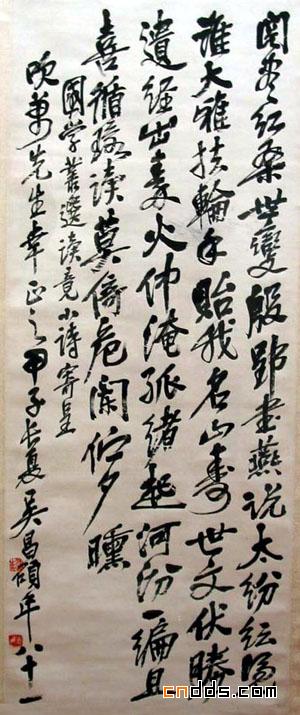 閱盡紅桑世變殷郢書燕說太紛紜
誰大雅扶輪手貽我名山壽世文伏勝
遺經出秦火仲淹孤緒起河汾一編且
喜循環讀莫倚危闌佇夕曛
國學叢選讀竟小詩寄呈
吹萬先生幸正之甲子長夏吳昌碩年八十一
cndds.com